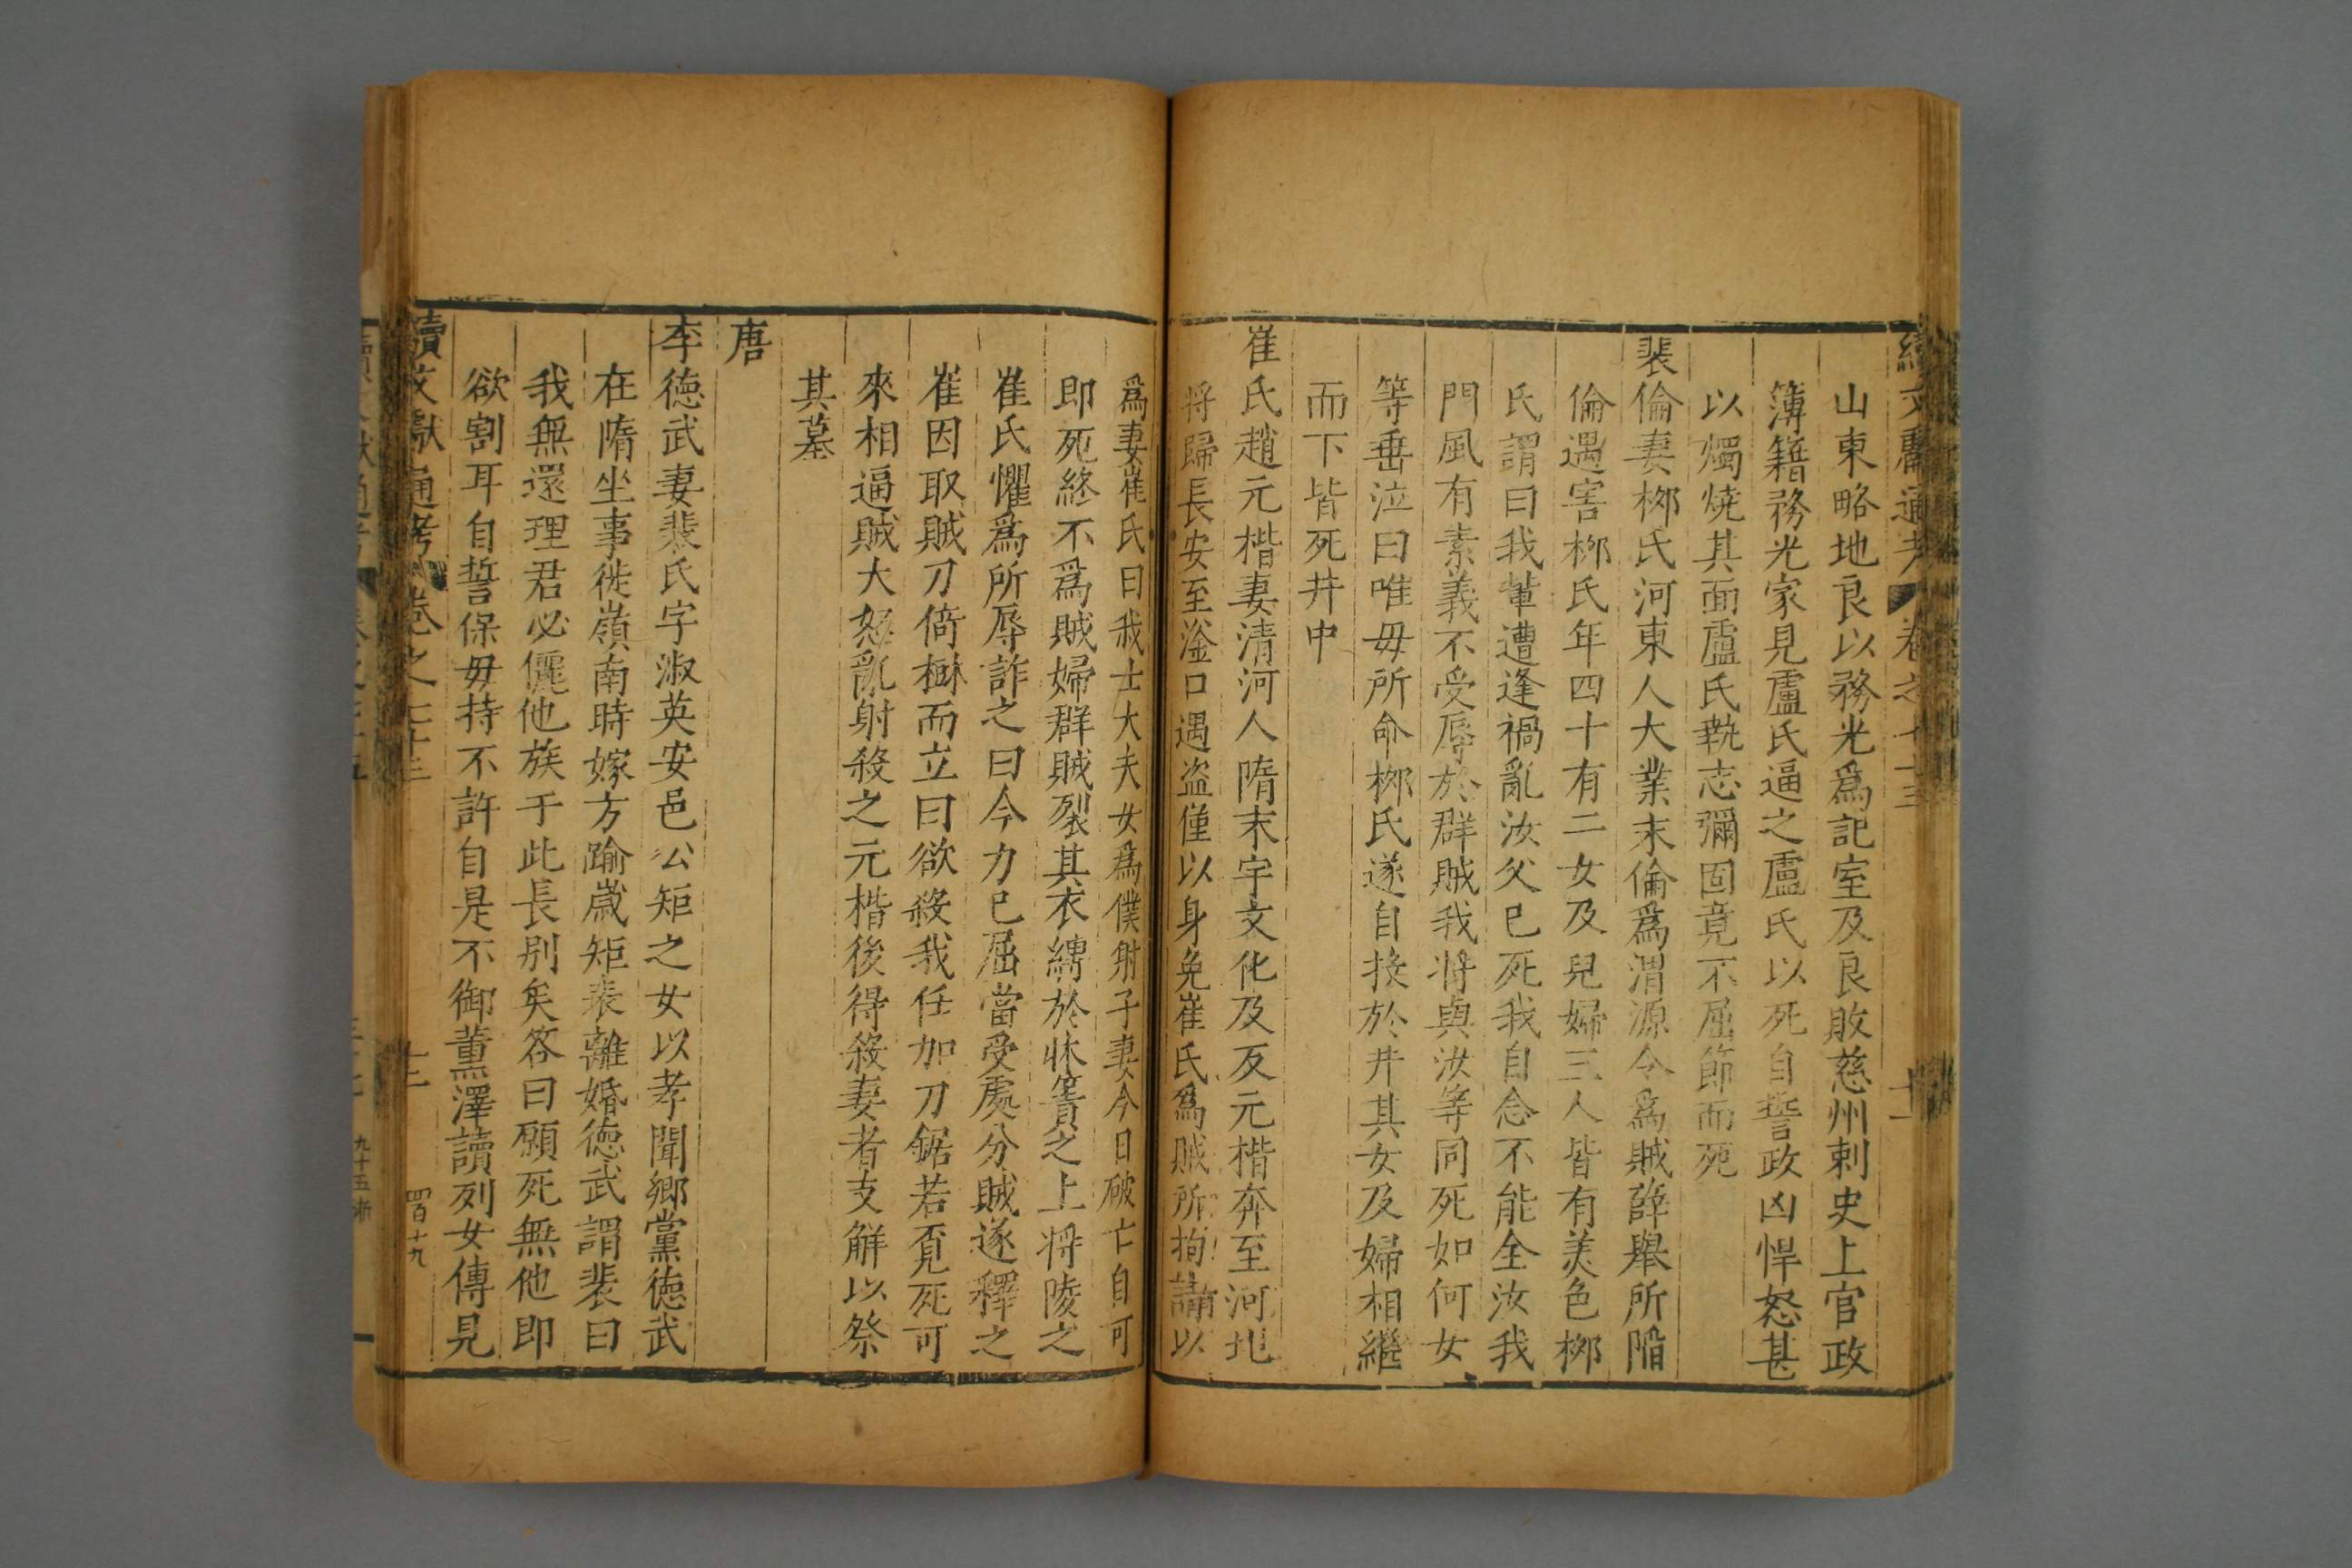 續文獻通考 卷之七十三 十一
山東略地良以務光爲記室及良敗慈州刺史上官政
簿籍務光家見盧氏逼之盧氏以死自誓政凶悍怒甚
以燭燒其面盧氏執志彌固竟不屈節而死
裴倫妻桺氏河東人大業末倫爲渭源令爲賊薛舉所陷
倫遇害桺氏年四十有二女及兒婦三人皆有美色桺
氏謂曰我輩遭逢禍亂汝父已死我自念不能全汝我
門風有素義不受辱於群賊我將與汝等同死如何女
等垂泣曰唯毋所命桺氏遂自投於井其女及婦相繼
而下皆死井中
崔氏趙元楷妻清河人隋末宇文化及反元楷奔至河北
將歸長安至滏口遇盗僅以身免崔氏爲賊所拘請以
爲妻崔氏曰我士大夫女爲僕射子妻今日破亡自可
即死終不爲賊婦群賊裂其衣縛於牀簀之上將陵之
崔氏懼爲所辱詐之曰今力已屈當受處分賊遂釋之
崔因取賊刀倚樹而立曰欲殺我任加刀鋸若覓死可
來相逼賊大怒亂射殺之元楷後得殺妻者支解以祭
其墓
唐
李德武妻裴氏字淑英安邑公矩之女以孝聞鄉黨德武
在隋坐事徙嶺南時嫁方踰歲矩表離婚德武謂裴曰
我無還理君必儷他族于此長别矣答曰願死無他即
欲割耳自誓保毋持不許自是不御薰澤讀列女傳見
續文獻通考 卷之七十三 十二 四百十九
九十五